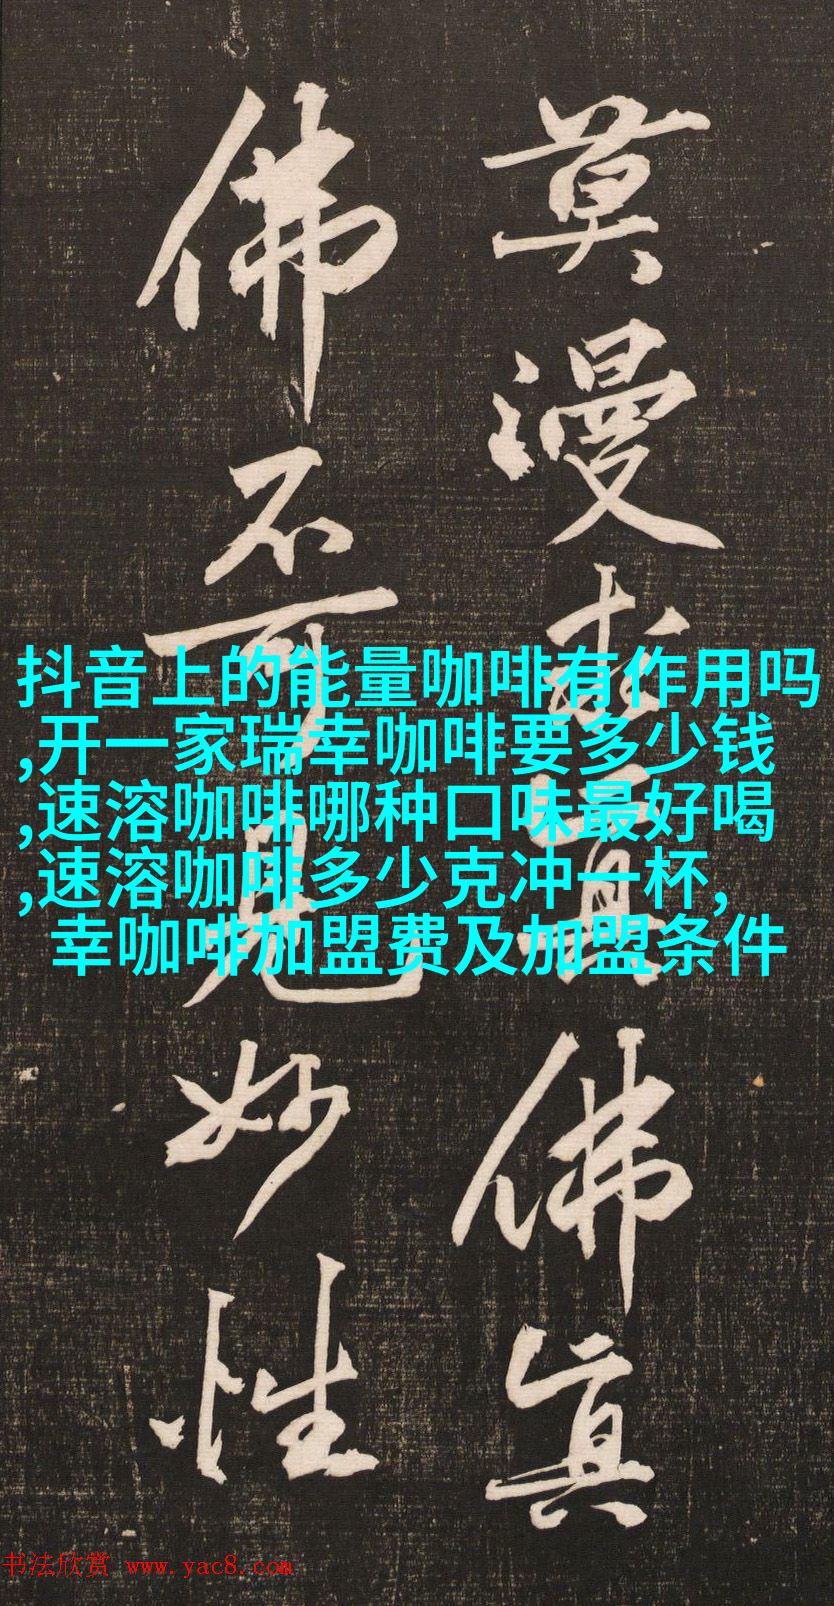 莫漫求真佛真
佛不可見妙性
抖音上的能量咖啡有作用吗
,开一家瑞幸咖啡要多少钱
,速溶咖啡哪种口味最好喝
,速溶咖啡多少克冲一杯,
幸咖啡加盟费及加盟条件
书法欣赏 www.yac8.com